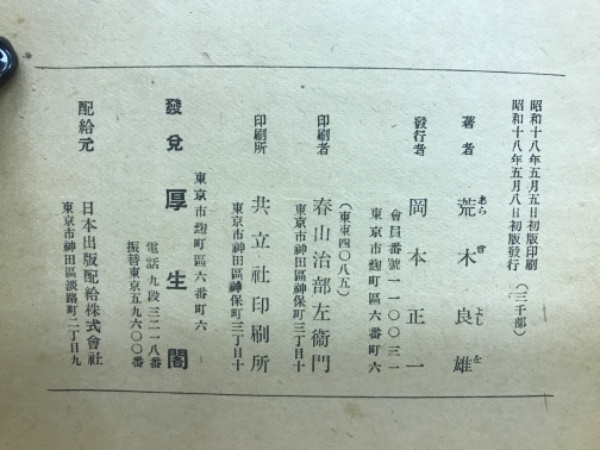 昭和十八年五月五日初版印刷
昭和十八年五月八日初版發行
(三千部)
著者 荒木良雄
あら き よし を
發行者 岡本正一
會員番號一一〇〇三一
東京市麴町區六番町六
印刷者 春山治部左衞門
(東東四〇八五)
東京市神田區神保町三丁目十
印刷所 共立社印刷所
東京市神田區神保町三丁目十
發兌 厚生閣
東京市麴町區六番町六
電話九段三二一八番
振替東京五九六〇〇番
配給元 日本出版配給株式會社
東京市神田區淡路町二丁目九